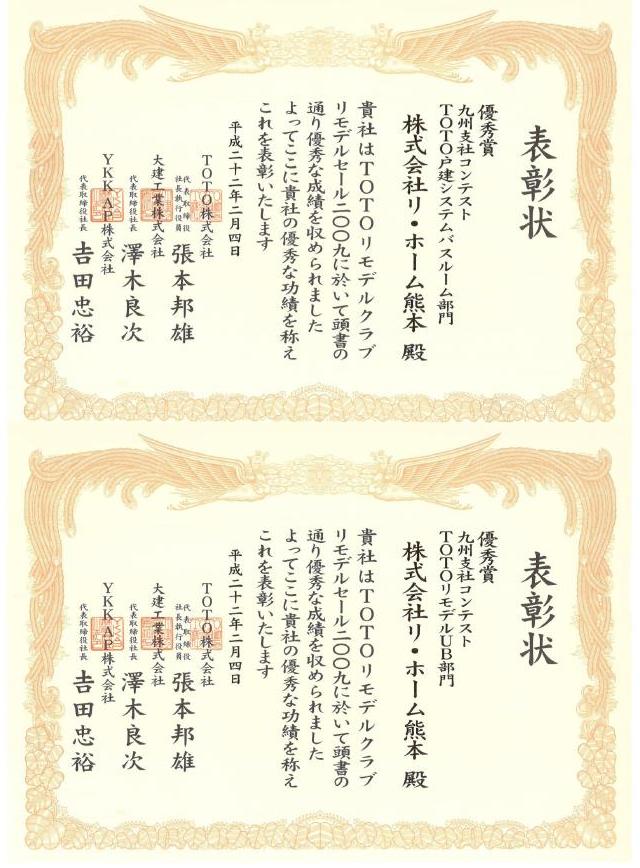 表彰状
優秀賞
九州支社コンテスト
TOTO戸建システムバスルーム部門
株式会社リ・ホーム熊本 殿
貴社はTOTOリモデルクラブ
リモデルセール二〇〇九に於いて頭書の
通り優秀な成績を収められました
よってここに貴社の優秀な功績を称え
これを表彰いたします
平成二十二年二月四日
TOTO株式会社
代表取締役
社長執行役員
張本邦雄
大建工業株式会社
代表取締役社長
澤木良次
YKK AP株式会社
代表取締役社長
吉田忠裕
表彰状
優秀賞
九州支社コンテスト
TOTOリモデルUB部門
株式会社リ・ホーム熊本 殿
貴社はTOTOリモデルクラブ
リモデルセール二〇〇九に於いて頭書の
通り優秀な成績を収められました
よってここに貴社の優秀な功績を称え
これを表彰いたします
平成二十二年二月四日
TOTO株式会社
代表取締役
社長執行役員
張本邦雄
大建工業株式会社
代表取締役社長
澤木良次
YKK AP株式会社
代表取締役社長
吉田忠裕